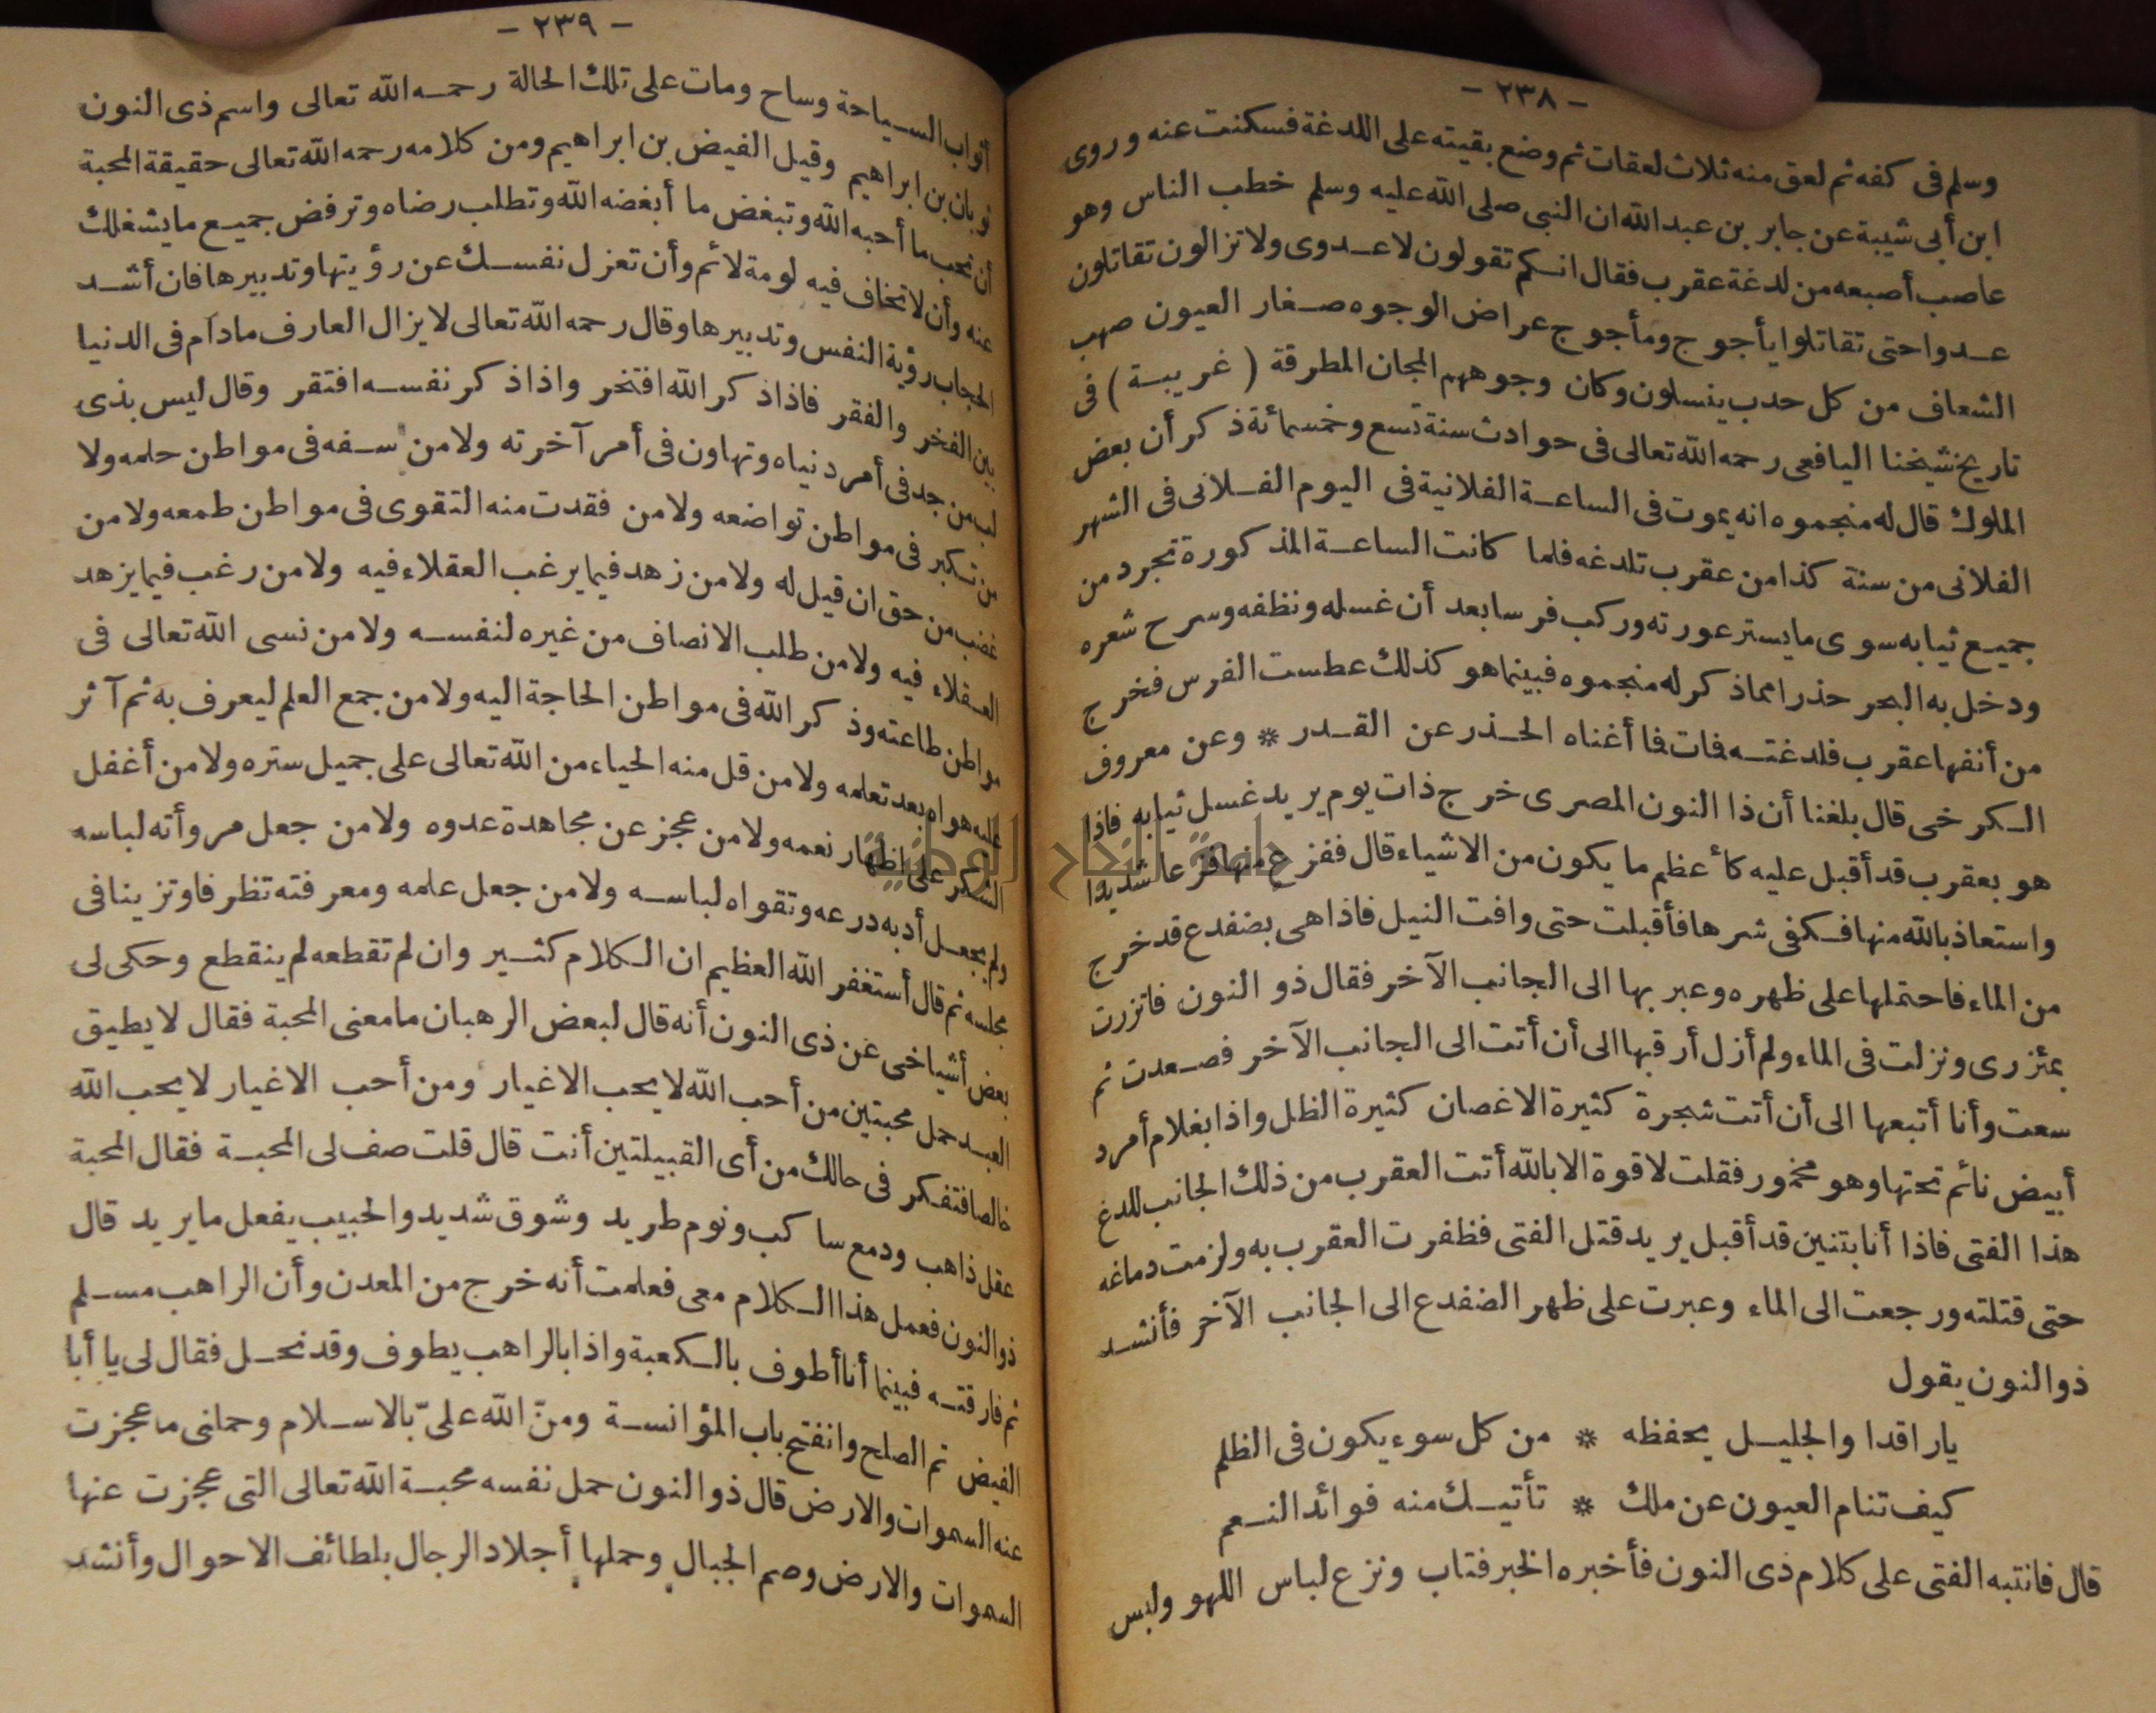 - ٢٣٨ -
وسلم فى كفه ثم لعق منه ثلاث لعقات ثم وضع بقيته على اللدغة فسكنت عنه وروى
ابن أبى شيبة عن جابر بن عبد الله ان النبى صلى الله عليه وسلم خطب الناس وهو
عاصب أصبعه من لدغة عقرب فقال انكم تقولون لا عدوى ولا تزالون تقاتلون
عدوا حتى تقاتلوا يأجوج ومأجوج عراض الوجوه صغار العيون صهب
الشعاف من كل حدب ينسلون وكان وجوههم المجان المطرقة ( غريبة ) فى
تاريخ شيخنا اليافعى رحمه الله تعالى فى حوادث سنة تسع وخمسمائة ذكر أن بعض
الملوك قال له منجموه انه يموت فى الساعة الفلانية فى اليوم الفلانى فى الشهر
الفلانى من سنة كذا من عقرب تلدغه فلما كانت الساعة المذكورة تجرد من
جميع ثيابه سوى ما يستر عورته وركب فرسا بعد أن غسله ونظفه وسرح شعره
ودخل به البحر حذرا مما ذكر له منجموه فبينما هو كذلك عطست الفرس فخرج
من أنفها عقرب فلدغته فمات فما أغناه الحذر عن القدر * وعن معروف
الكرخى قال بلغنا أن ذا النون المصرى خرج ذات يوم يريد غسل ثيابه فاذا
هو بعقرب قد أقبل عليه كأعظم ما يكون من الاشياء قال ففزع منها فزعا شديدا
واستعاذ بالله منها فكفى شرها فأقبلت حتى وافت النيل فاذا هى بضفدع قد خرج
من الماء فاحتملها على ظهره وعبر بها الى الجانب الآخر فقال ذو النون فاتزرت
بمئزرى ونزلت فى الماء ولم أزل أرقبها الى أن أتت الى الجانب الآخر فصعدت ثم
سعت وأنا أتبعها الى أن أتت شجرة كثيرة الاغصان كثيرة الظل واذا بغلام أمرد
أبيض نائم تحتها وهو مخمور فقلت لا قوة الا بالله أتت العقرب من ذلك الجانب للدغ
هذا الفتى فاذا أنا بتنين قد أقبل يريد قتل الفتى فظفرت العقرب به ولزمت دماغه
حتى قتلته ورجعت الى الماء وعبرت على ظهر الضفدع الى الجانب الآخر فأنشد
ذو النون يقول
يا راقدا والجليل يحفظه * من كل سوء يكون فى الظلم
كيف تنام العيون عن ملك * تأتيك منه فوائد النعم
قال فانتبه الفتى على كلام ذى النون فأخبره الخبر فتاب ونزع لباس اللهو ولبس
- ٢٣٩ -
أثواب السياحة وساح ومات على تلك الحالة رحمه الله تعالى واسم ذى النون
ثوبان بن ابراهيم وقيل الفيض بن ابراهيم ومن كلامه رحمه الله تعالى حقيقة المحبة
أن تحب ما أحبه الله وتبغض ما أبغضه الله وتطلب رضاه وترفض جميع ما يشغلك
عنه وأن لا تخاف فيه لومة لائم وأن تعزل نفسك عن رؤيتها وتدبيرها فان أشد
الحجاب رؤية النفس وتدبيرها وقال رحمه الله تعالى لا يزال العارف مادام فى الدنيا
بين الفخر والفقر فاذا ذكر الله افتخر واذا ذكر نفسه افتقر وقال ليس بذى
لب من جد فى أمر دنياه وتهاون فى أمر آخرته ولا من سفه فى مواطن حلمه ولا
من تكبر فى مواطن تواضعه ولا من فقدت منه التقوى فى مواطن طمعه ولا من
غضب من حق ان قيل له ولا من زهد فيما يرغب العقلاء فيه ولا من رغب فيما يزهد
العقلاء فيه ولا من طلب الانصاف من غيره لنفسه ولا من نسى الله تعالى فى
مواطن طاعته وذكر الله فى مواطن الحاجة اليه ولا من جمع العلم ليعرف به ثم آثر
عليه هواه بعد تعلمه ولا من قل منه الحياء من الله تعالى على جميل ستره ولا من أغفل
الشكر على اظهار نعمه ولا من عجز عن مجاهدة عدوه ولا من جعل مروأته لباسه
ولم يجعل أدبه درعه وتقواه لباسه ولا من جعل علمه ومعرفته تظرفا وتزينا فى
مجلسه ثم قال أستغفر الله العظيم ان الكلام كثير وان لم تقطعه لم ينقطع وحكى لى
بعض أشياخى عن ذى النون أنه قال لبعض الرهبان ما معنى المحبة فقال لا يطيق
العبد حمل محبتين من أحب الله لا يحب الاغيار ومن أحب الاغيار لا يحب الله
خالصا فتفكر فى حالك من أى القبيلتين أنت قال قلت صف لى المحبة فقال المحبة
عقل ذاهب ودمع ساكب ونوم طريد وشوق شديد والحبيب يفعل ما يريد قال
ذو النون فعمل هذا الكلام معى فعلمت أنه خرج من المعدن وأن الراهب مسلم
ثم فارقته فبينما أنا أطوف بالكعبة واذا بالراهب يطوف وقد نحل فقال لى يا أبا
الفيض تم الصلح وانفتح باب المؤانسة ومنّ الله علىّ بالاسلام وحملنى ما عجزت
عنه السموات والارض قال ذو النون حمل نفسه محبة الله تعالى التى عجزت عنها
السموات والارض وصم الجبال وحملها أجلاد الرجال بلطائف الاحوال وأنشد
جامعة النجاح الوطنية